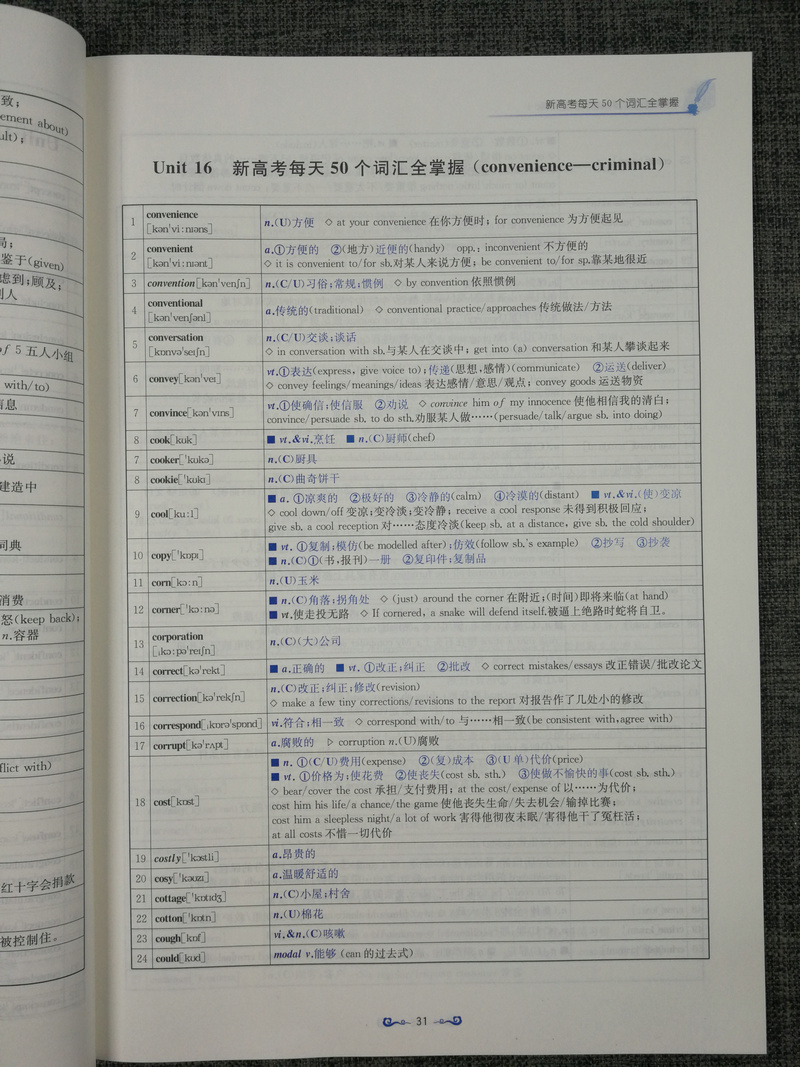 致；
ement about)
ult)；
局；
鉴于(given)
虑到；顾及；
别人
of 5 五人小组
with/to)
信息
小说
建造中
词典
消费
怒(keep back)；
n.容器
flict with)
红十字会捐款
被控制住。
新高考每天 50 个词汇全掌握
Unit 16 新高考每天 50 个词汇全掌握（convenience—criminal）
1 convenience [kənˈviːnɪəns] n.(U)方便 ◇ at your convenience 在你方便时；for convenience 为方便起见
2 convenient [kənˈviːnɪənt] a.①方便的 ②(地方)近便的(handy) opp.：inconvenient 不方便的
◇ it is convenient to/for sb.对某人来说方便；be convenient to/for sp.靠某地很近
3 convention[kənˈvenʃn] n.(C/U)习俗；常规；惯例 ◇ by convention 依照惯例
4 conventional [kənˈvenʃənl] a.传统的(traditional) ◇ conventional practice/approaches 传统做法/方法
5 conversation [kɒnvəˈseɪʃn] n.(C/U)交谈；谈话
◇ in conversation with sb.与某人在交谈中；get into (a) conversation 和某人攀谈起来
6 convey[kənˈveɪ] vt.①表达(express, give voice to)；传递(思想，感情)(communicate) ②运送(deliver)
◇ convey feelings/meanings/ideas 表达感情/意思/观点；convey goods 运送物资
7 convince[kənˈvɪns] vt.①使确信；使信服 ②劝说 ◇ convince him of my innocence 使他相信我的清白；
convince/persuade sb. to do sth.劝服某人做……(persuade/talk/argue sb. into doing)
8 cook[kʊk] ■ vt.&vi.烹饪 ■ n.(C)厨师(chef)
7 cooker[ˈkʊkə] n.(C)厨具
8 cookie[ˈkʊkɪ] n.(C)曲奇饼干
9 cool[kuːl] ■ a. ①凉爽的 ②极好的 ③冷静的(calm) ④冷漠的(distant) ■ vt.&vi.(使)变凉
◇ cool down/off 变凉；变冷淡；变冷静；receive a cool response 未得到积极回应；
give sb. a cool reception 对……态度冷淡(keep sb. at a distance, give sb. the cold shoulder)
10 copy[ˈkɒpɪ] ■ vt. ①复制；模仿(be modelled after)；仿效(follow sb.'s example) ②抄写 ③抄袭
■ n.(C)①(书，报刊)一册 ②复印件；复制品
11 corn[kɔːn] n.(U)玉米
12 corner[ˈkɔːnə] ■ n.(C)角落；拐角处 ◇ (just) around the corner 在附近；(时间)即将来临(at hand)
■ vt.使走投无路 ◇ If cornered, a snake will defend itself.被逼上绝路时蛇将自卫。
13 corporation [ˌkɔːpəˈreɪʃn] n.(C)(大)公司
14 correct[kəˈrekt] ■ a.正确的 ■ vt. ①改正；纠正 ②批改 ◇ correct mistakes/essays 改正错误/批改论文
15 correction[kəˈrekʃn] n.(C)改正；纠正；修改(revision)
◇ make a few tiny corrections/revisions to the report 对报告作了几处小的修改
16 correspond[ˌkɒrəˈspɒnd] vi.符合；相一致 ◇ correspond with/to 与……相一致(be consistent with,agree with)
17 corrupt[kəˈrʌpt] a.腐败的 ▷ corruption n.(U)腐败
18 cost[kɒst] ■ n. ①(C/U)费用(expense) ②(复)成本 ③(U 单)代价(price)
■ vt. ①价格为；使花费 ②使丧失(cost sb. sth.) ③使做不愉快的事(cost sb. sth.)
◇ bear/cover the cost 承担/支付费用；at the cost/expense of 以……为代价；
cost him his life/a chance/the game 使他丧失生命/失去机会/输掉比赛；
cost him a sleepless night/a lot of work 害得他彻夜未眠/害得他干了冤枉活；
at all costs 不惜一切代价
19 costly[ˈkɔstli] a.昂贵的
20 cosy[ˈkəʊzɪ] a.温暖舒适的
21 cottage[ˈkɒtɪdʒ] n.(C)小屋；村舍
22 cotton[ˈkɒtn] n.(U)棉花
23 cough[kɒf] vi.&n.(C)咳嗽
24 could[kʊd] modal v.能够 (can 的过去式)
31